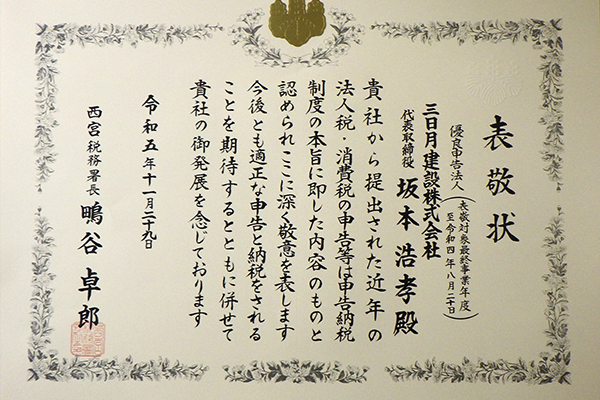 表敬状
優良申告法人(表敬対象最終事業年度 至令和四年八月二十日)
三日月建設株式会社
代表取締役 坂本浩孝殿
貴社から提出された近年の
法人税・消費税の申告等は申告納税
制度の本旨に即した内容のものと
認められここに深く敬意を表します
今後とも適正な申告と納税をされる
ことを期待するとともに併せて
貴社の御発展を念じております
令和五年十一月二十九日
西宮税務署長 鴫谷卓郎